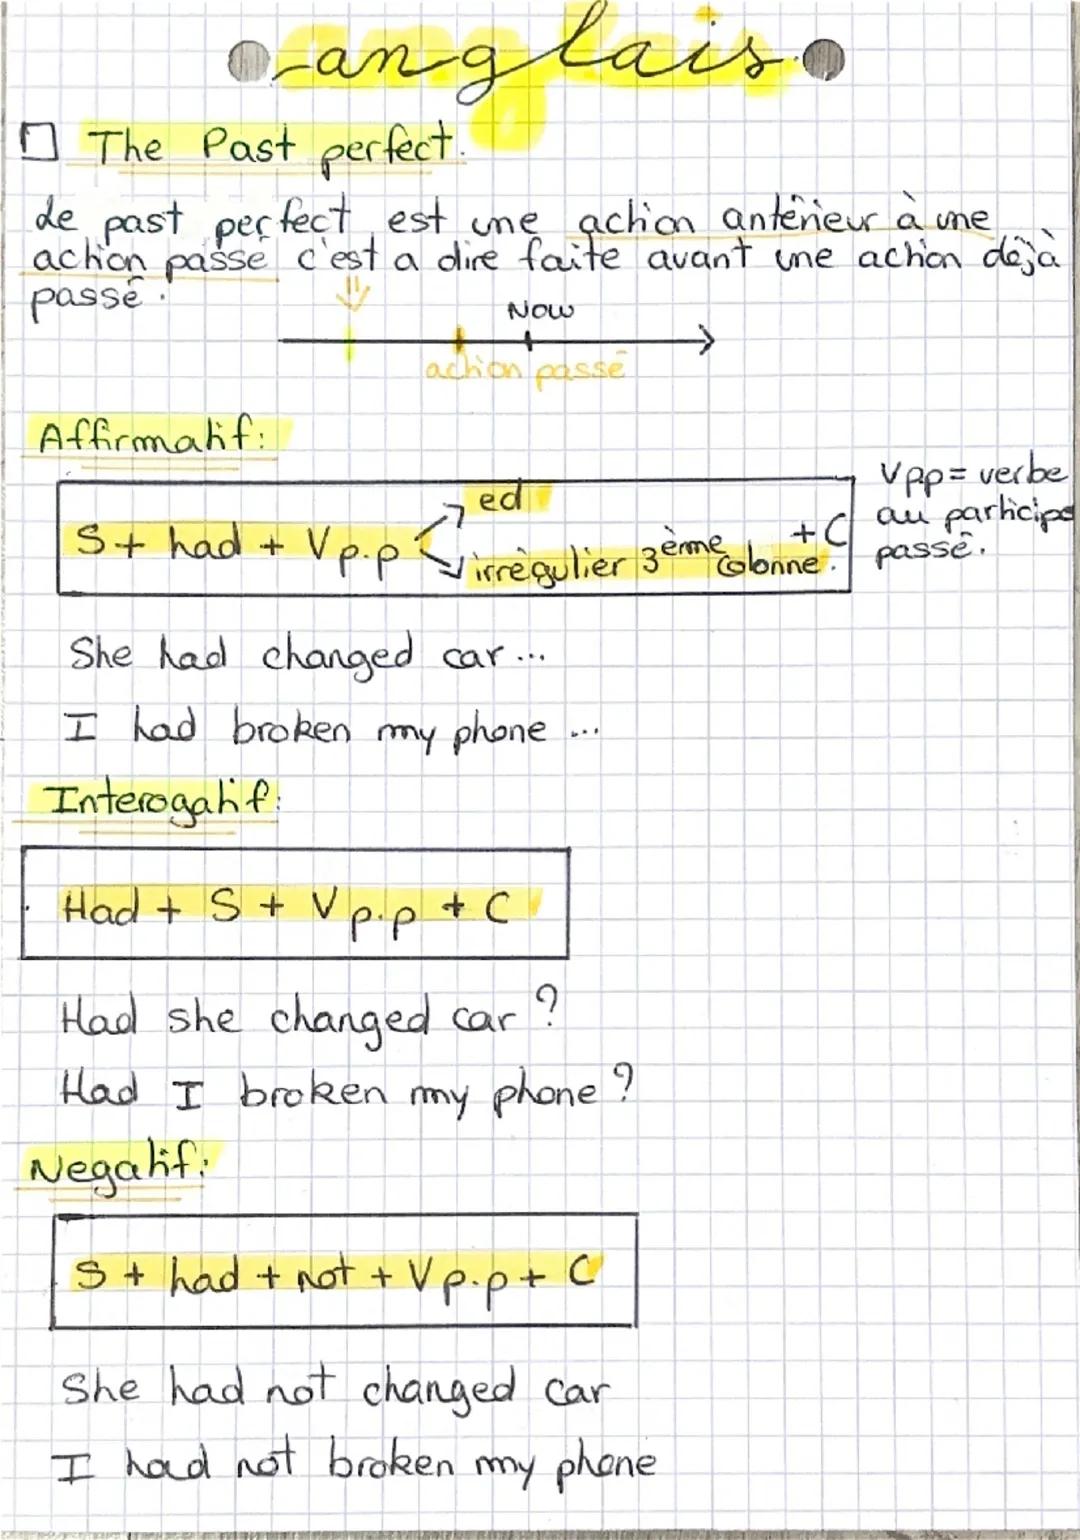 anglais
The Past perfect.
Le past perfect est une action antérieur à une
action passé c'est a dire faite avant une action déjà
passé.
Now
action passé
Affirmatif:
S + had + V p.p
ed
irrégulier 3ème colonne.
+ C
Vpp = verbe
au participe
passé.
She had changed car...
I had broken my phone ...
Interogatif:
Had + S + V p.p + C
Had she changed car ?
Had I broken my phone ?
Negatif:
S + had + not + V p.p + C
She had not changed car
I had not broken my phone